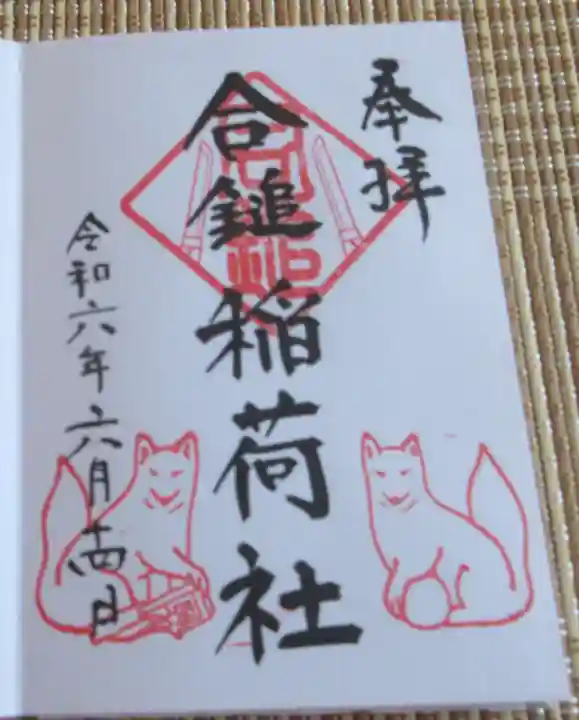 奉拝
合鎚稲荷社
令和六年六月十四日